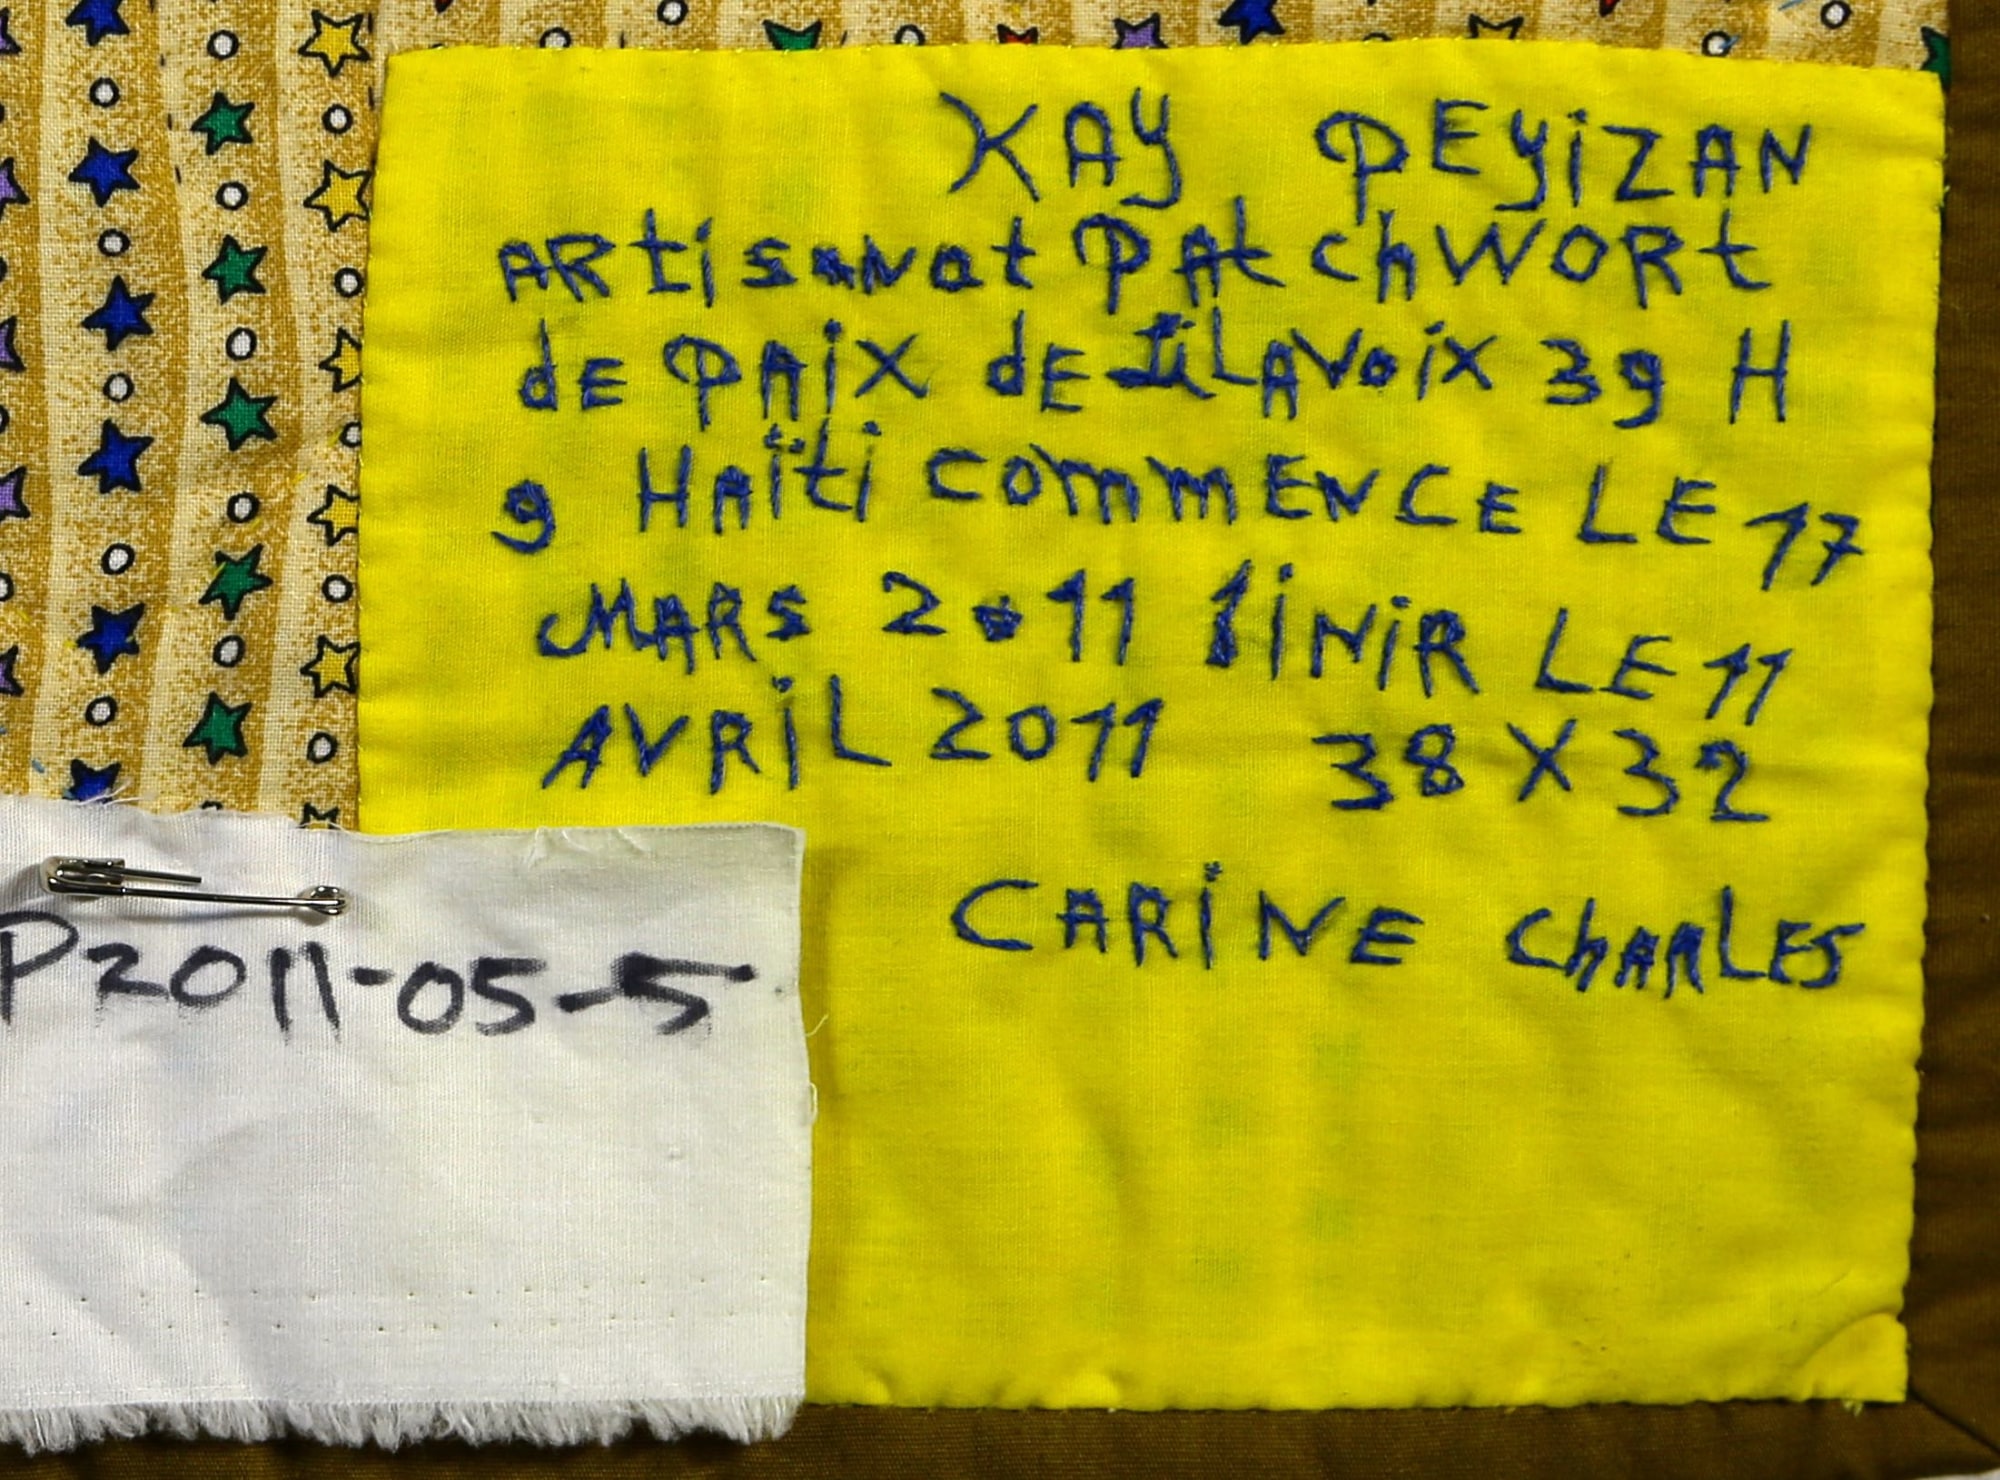 KAY PEYiZAN
ARtisanat PAtchWORt
dE PAiX dE LiLAVoiX 39 H
9 HAïti COmmENCE LE 17
MARS 2011 fiNiR LE 11
AVRiL 2011 38 X 32
CARiNE ChARLES
P2011-05-5